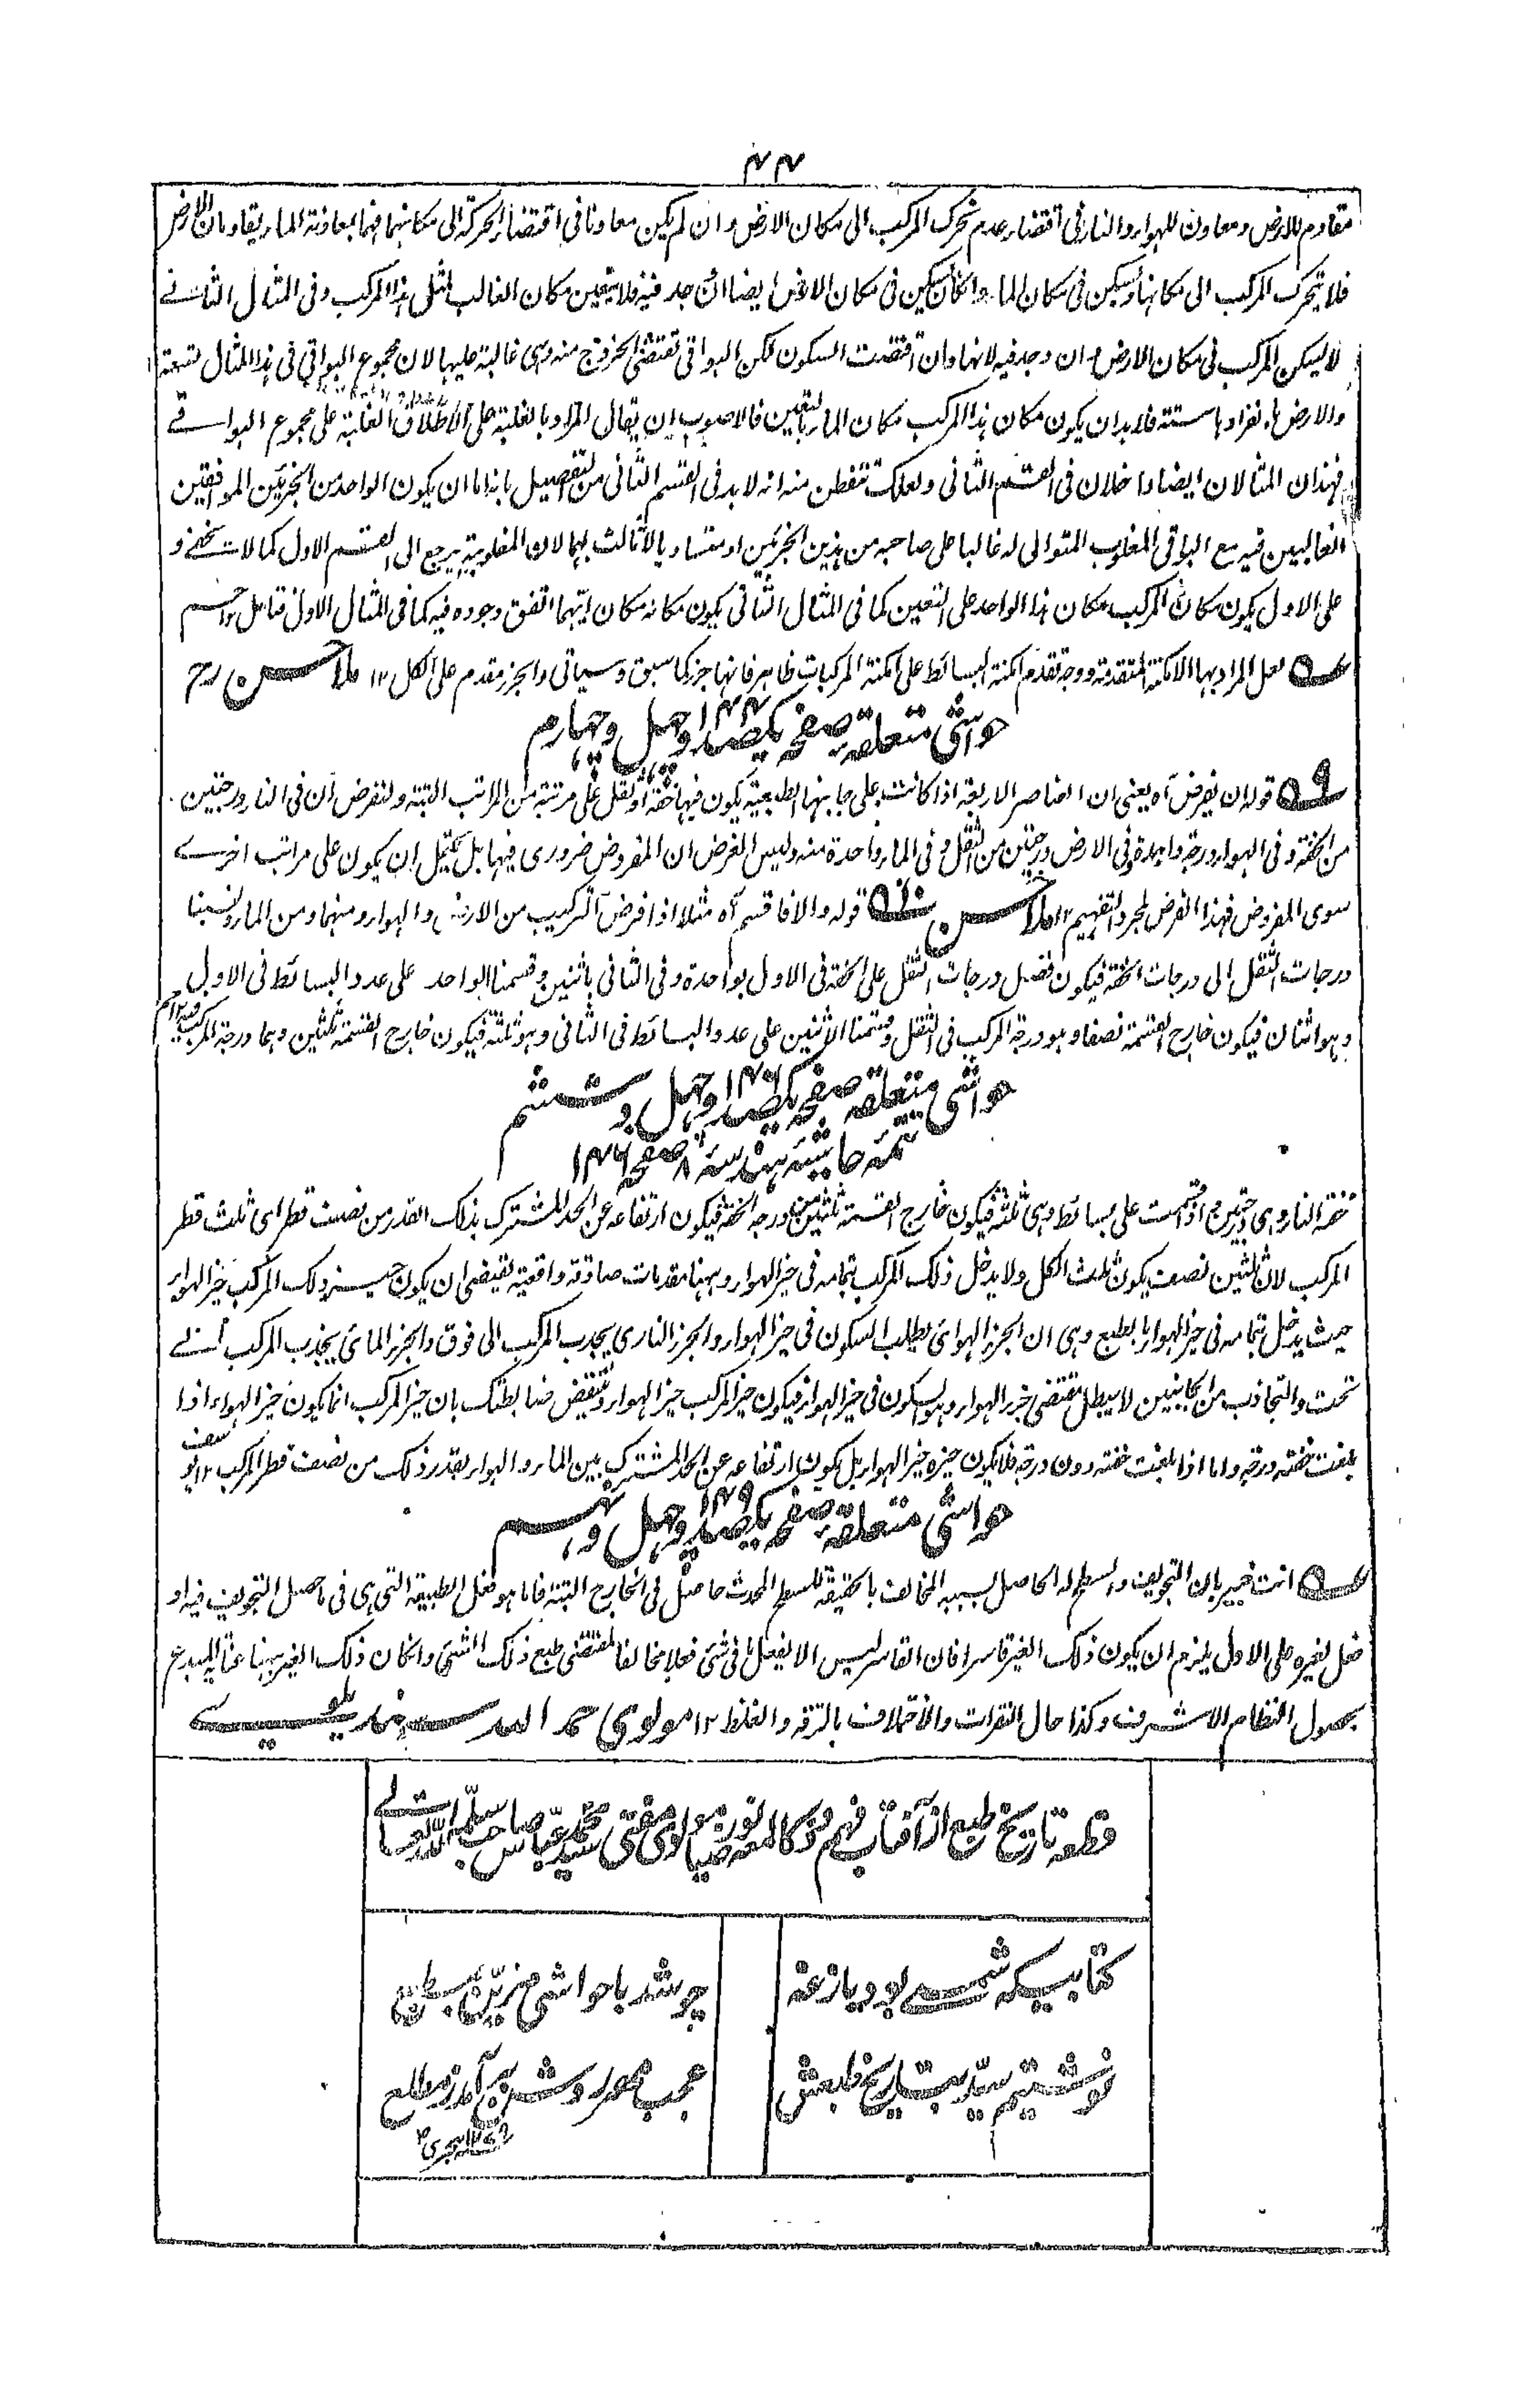 ۴۴
مقاوم للارض ومعاون للهواء والنار فی اقتضاء عدم تحرک المرکب الی مکان الارض وان لم یکن معاونا فی اقتضاء الحرکة الی مکانهما فهما بمعاونة الماء یقاومان الارض
فلا یتحرک المرکب الی مکانها ویسکن فی مکان الماء وانکان یسکن فی مکان الارض ایضا ان وجد فیه فلا یتعین مکان الغالب لمثل هذا المرکب وفی المثال الثانے
لا یسکن المرکب فی مکان الارض وان وجد فیه لانها وان اقتضت السکون لکن البواقی تقتضی الخروج منه وهی غالبة علیها لان مجموع البواقی فی هذا المثال تسعة
والارض بانفرادها ستة فلا بد ان یکون مکان هذا المرکب مکان الماء بالتعین فالاصوب ان یقال المراد بالغلبة علی الاطلاق الغلبة علی مجموع البواقے
فهذان المثالان ایضا داخلان فی القسم الثانی ولعلک تتفطن منه انه لا بد فی القسم الثانی من التفصیل بانه اما ان یکون الواحد من الجزئین الموافقین
الغالبین فیه مع الباقی المغلوب المتوالی له غالبا علی صاحبه من هذین الجزئین او متساویا لا ثالث لهما لان المغلوبیة یرجع الی القسم الاول کما لا یخفے و
علی الاول یکون مکان المرکب مکان هذا الواحد علی التعین کما فی المثال الثانی یکون مکانه مکان ایهما اتفق وجوده فیه کما فی المثال الاول فتامل
لعل المراد بها الامکنة المتقدمة ووجه تقدم امکنة البسائط علی امکنة المرکبات ظاهر فانها جزء کما سبق وسیاتی والجزء مقدم علی الکل ۱۲ ملا حسن رح
حواشی متعلقه صفحه یکصد و چهل و چهارم ۱۴۴
قوله ان یفرض آه یعنی ان العناصر الاربعة اذا کانت علی جانبها الطبعیة یکون فیها خفة او ثقل علی مرتبة من المراتب البتة ولنفرض ان فی النار درجتین
من الخفة وفی الهواء درجة واحدة وفی الارض درجتین من الثقل وفی الماء واحدة منه ولیس الغرض ان المفروض ضروری فیها بل یحتمل ان یکون علی مراتب اخرے
سوی المفروض فهذا الفرض لمجرد التفهیم ۱۲ ملا حسن قوله والا فاقسم آه مثلا اذا فرض الترکیب من الارض والهواء ومنهما ومن الماء ونسبنا
درجات الثقل الی درجات الخفة فیکون فضل درجات الثقل علی الخفة فی الاول بواحدة وفی الثانی باثنین وقسمنا الواحد علی عدد البسائط فی الاول
وهو اثنان فیکون خارج القسمة نصفا وهو درجة المرکب فی الثقل وقسمنا الاثنین علی عدد البسائط فی الثانی وهو ثلثة فیکون خارج القسمة ثلثین وهما درجة المرکب
حواشی متعلقه صفحه یکصد و چهل و ششم ۱۴۶
تتمه حاشیه هندسه ۸ صفحه ۱۴۶
خفة النار وهی درجتین اذا قسمت علی بسائط وهی ثلثة فیکون خارج القسمة ثلثین من درجة الخفة فیکون ارتفاعه عن الحد المشترک بذلک القدر من نصف قطر ای ثلث قطر
المرکب لان ثلثین نصف یکون ثلث الکل ولا یدخل ذلک المرکب بتمامه فی حیز الهواء وههنا مقدمات صادقة واقعیة تقیضی ان یکون حیز ذلک المرکب حیز الهواء
حیث یدخل بتمامه فی حیز الهواء بالطبع وهی ان الجزء الهوائی یطلب السکون فی حیز الهواء والجزء الناری یجذب المرکب الی فوق والجزء المائی یجذب المرکب الے
تحت والتجاذب من الجانبین لا یبطل مقتضی جزء الهواء وهو السکون فی حیز الهواء فیکون حیز المرکب حیز الهواء وتنقیض ضابطتک بان حیز المرکب انما یکون حیز الهواء اذا
بلغت خفته درجة واما اذا بلغت خفته دون درجة فلا یکون حیزه حیز الهواء بل یکون ارتفاعه عن الحد المشترک بین الماء والهواء بقدر ذلک من نصف قطر المرکب ۱۲ یوسف
حواشی متعلقه صفحه یکصد و چهل و نهم ۱۴۹
انت خبیر بان التجویف والسطح له الحاصل بسببه المخالف بالحقیقة للسطح المحدث حاصل فی الخارج البتة فاما هو فعل الطبیعة التی هی فی ما حصل التجویف فیه او
فعل لغیره علی الاول یلزم ان یکون ذلک الغیر قاسرا فان القاسر لیس الا یفعل فی شئ فعلا مخالفا لمقتضی طبع ذلک الشئ وانکان ذلک الغیر ههنا عنایة المبدع
بحصول النظام الاشرف وکذا حال النقرات والاختلاف بالرقة والغلظ ۱۲ مولوی حمد الله سندیلوے
قطعه تاریخ طبع از آفتاب فهم و ذکا لمعه نور و ضیا مولوی مفتی سید محمد عباس صاحب سلمه الله تعالے
کتابیکه شمسے بود یازغه
چو شد با حواشی مزین بطبع
نوشتیم سید بتاریخ طبعش
عجب مهر روشن برآمد ز مطلع
هجری